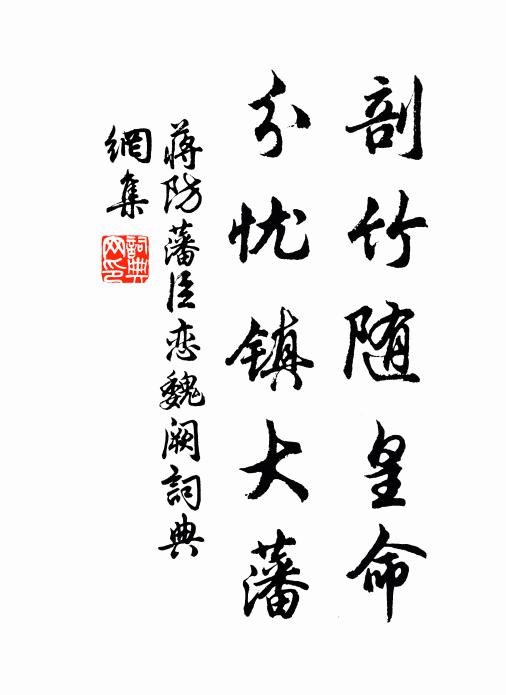 剖竹随皇命
分忧镇大藩
蒋防藩臣恋魏阙詞典
網集
詞典网印